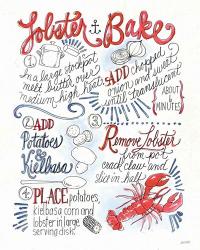 Lobster Bake
1
In a large stockpot
melt butter over
medium high heat.
ADD chopped
onion and sweet
until translucent
{ABOUT
MINUTES}
2 ADD
Potatoes
& Kielbasa
3
Remove Lobster
from pot,
crack claws and
slice in half
4 PLACE potatoes,
kielbasa corn and
lobster in large
serving dish.